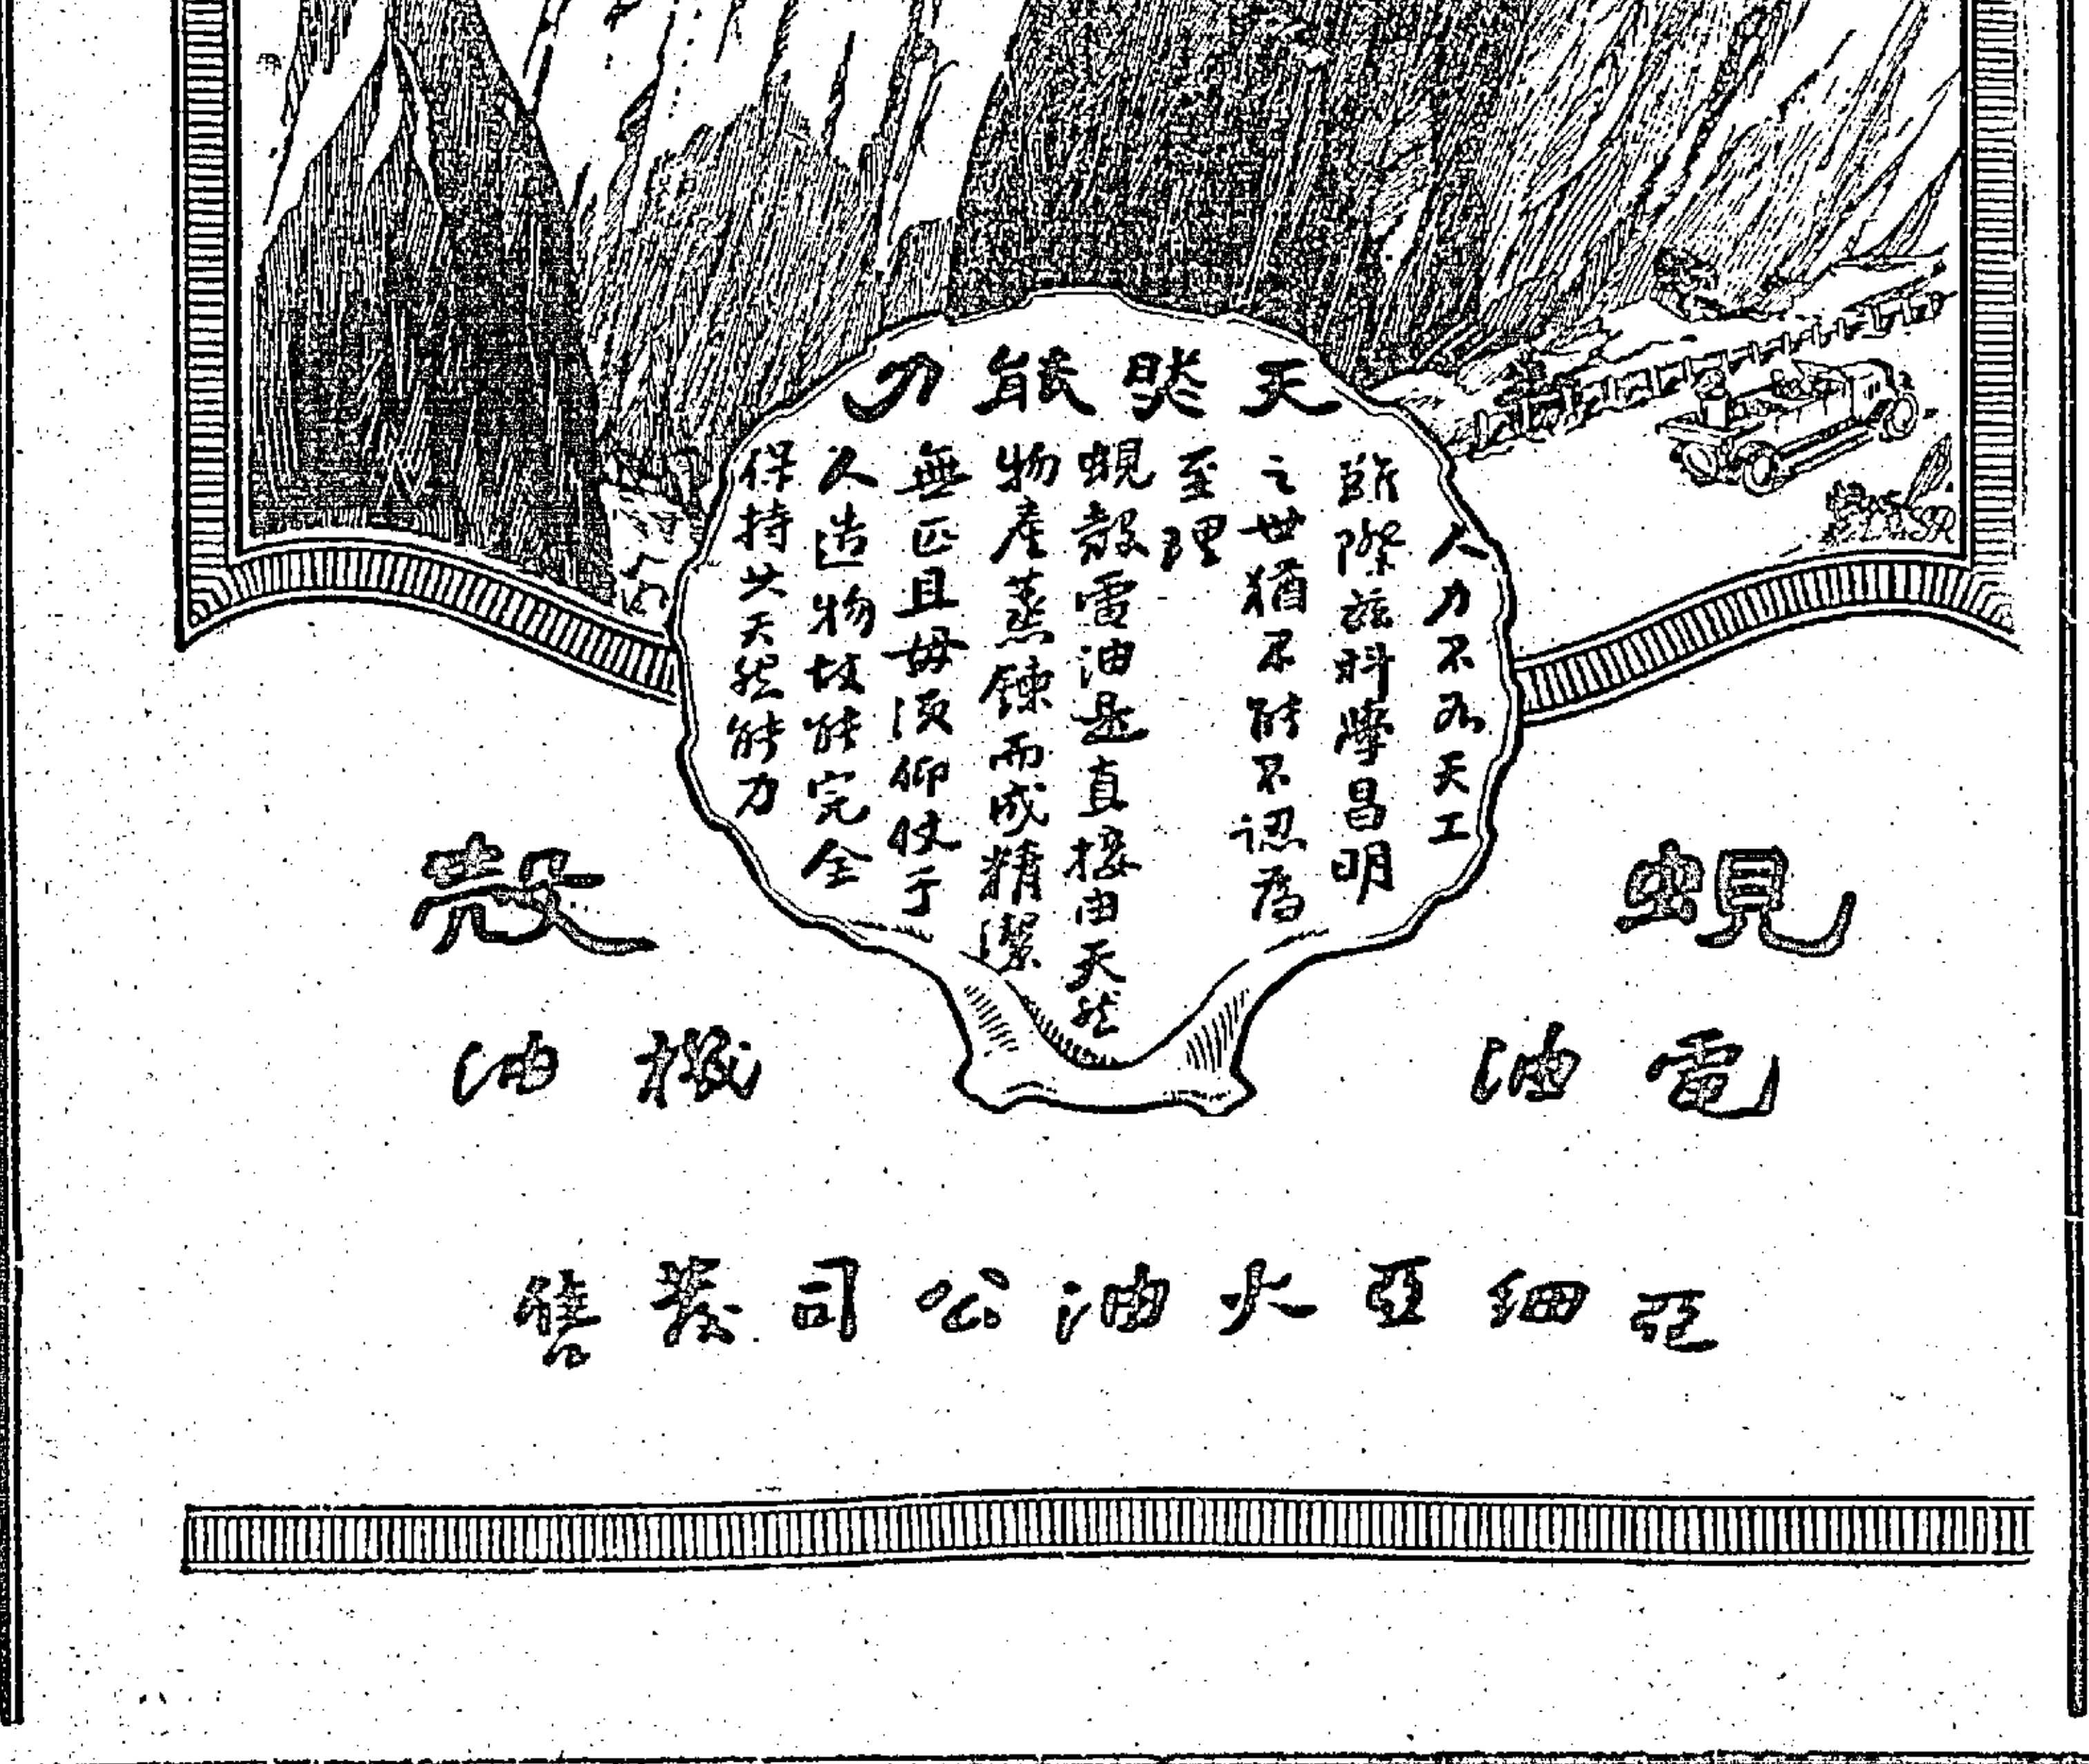 天然能力
人力不如天工
雖際茲科學昌明
之世猶不能不認為
至理
蜆殼電油是直接由天然
物產蒸鍊而成精潔
無匹且毋須仰仗于
人造物故能完全
保持其天然能力
SR
蜆殼
電油 機油
亞細亞火油公司發售